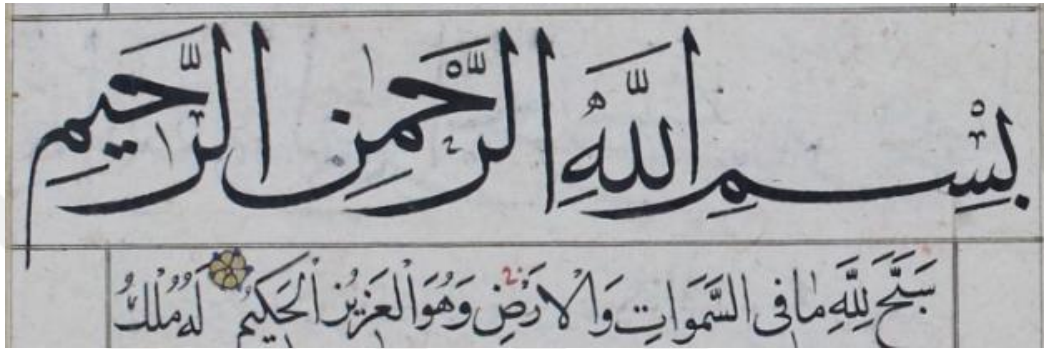 بِسْمِ اللَّهِ الرَّحْمٰنِ الرَّحِيمِ
سَبَّحَ لِلَّهِ مَا فِى السَّمَوَاتِ وَالْاَرْضِ وَهُوَ الْعَزِيْزُ الْحَكِيْمُ لَهُ مُلْكُ